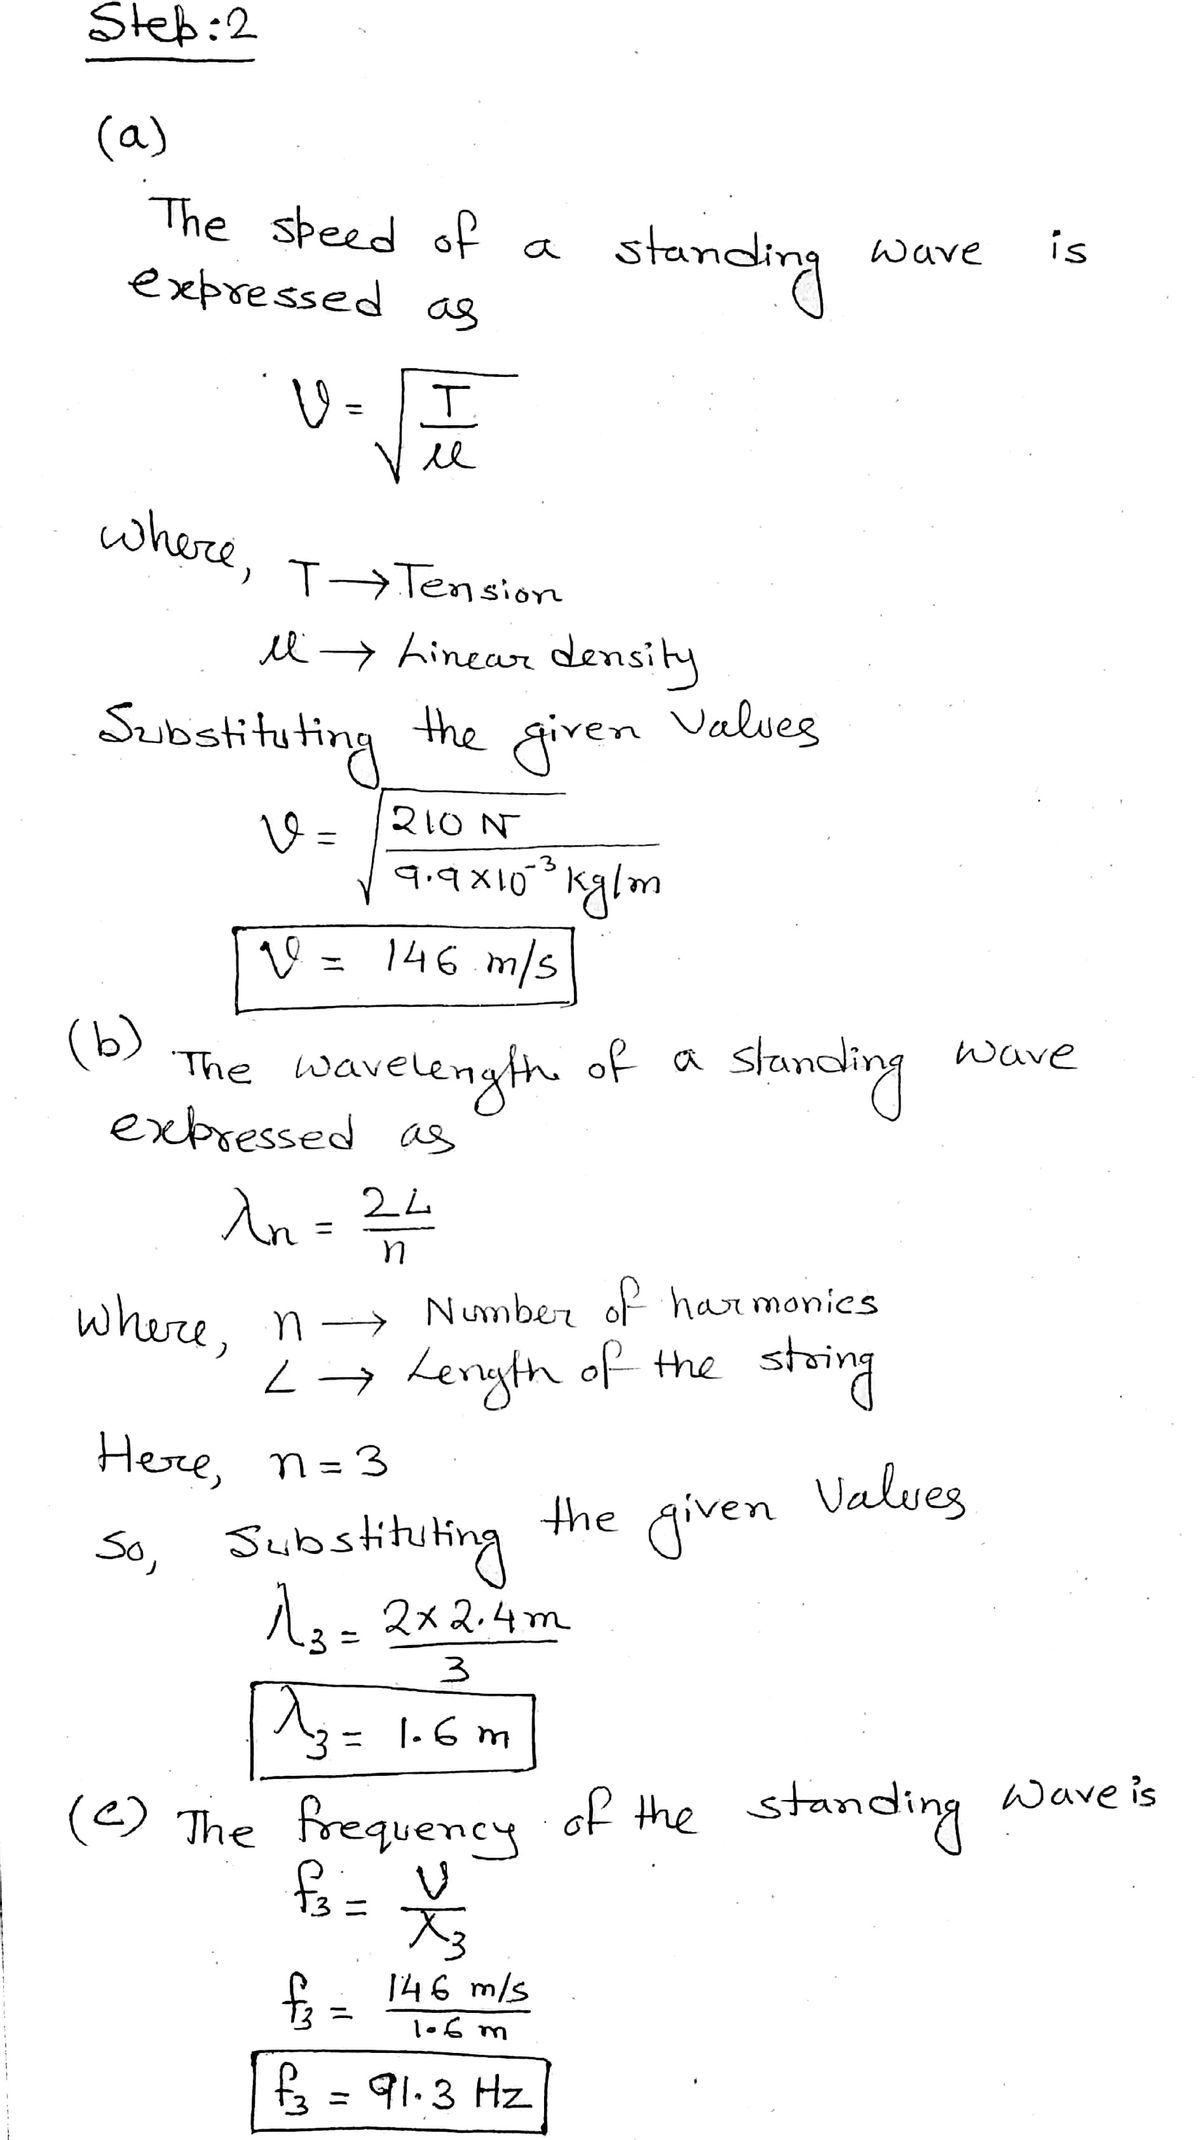 Step:2
(a)
The speed of a standing wave is
expressed as
V = √(T/μ)
where, T → Tension
μ → Linear density
Substituting the given values
V = √(210 N / 9.9 × 10⁻³ kg/m)
V = 146 m/s
(b) The wavelength of a standing wave
expressed as
λn = 2L/n
where, n → Number of harmonics
L → Length of the string
Here, n = 3
So, Substituting the given values
λ₃ = 2 × 2.4 m / 3
λ₃ = 1.6 m
(c) The frequency of the standing wave is
f₃ = V/λ₃
f₃ = 146 m/s / 1.6 m
f₃ = 91.3 Hz